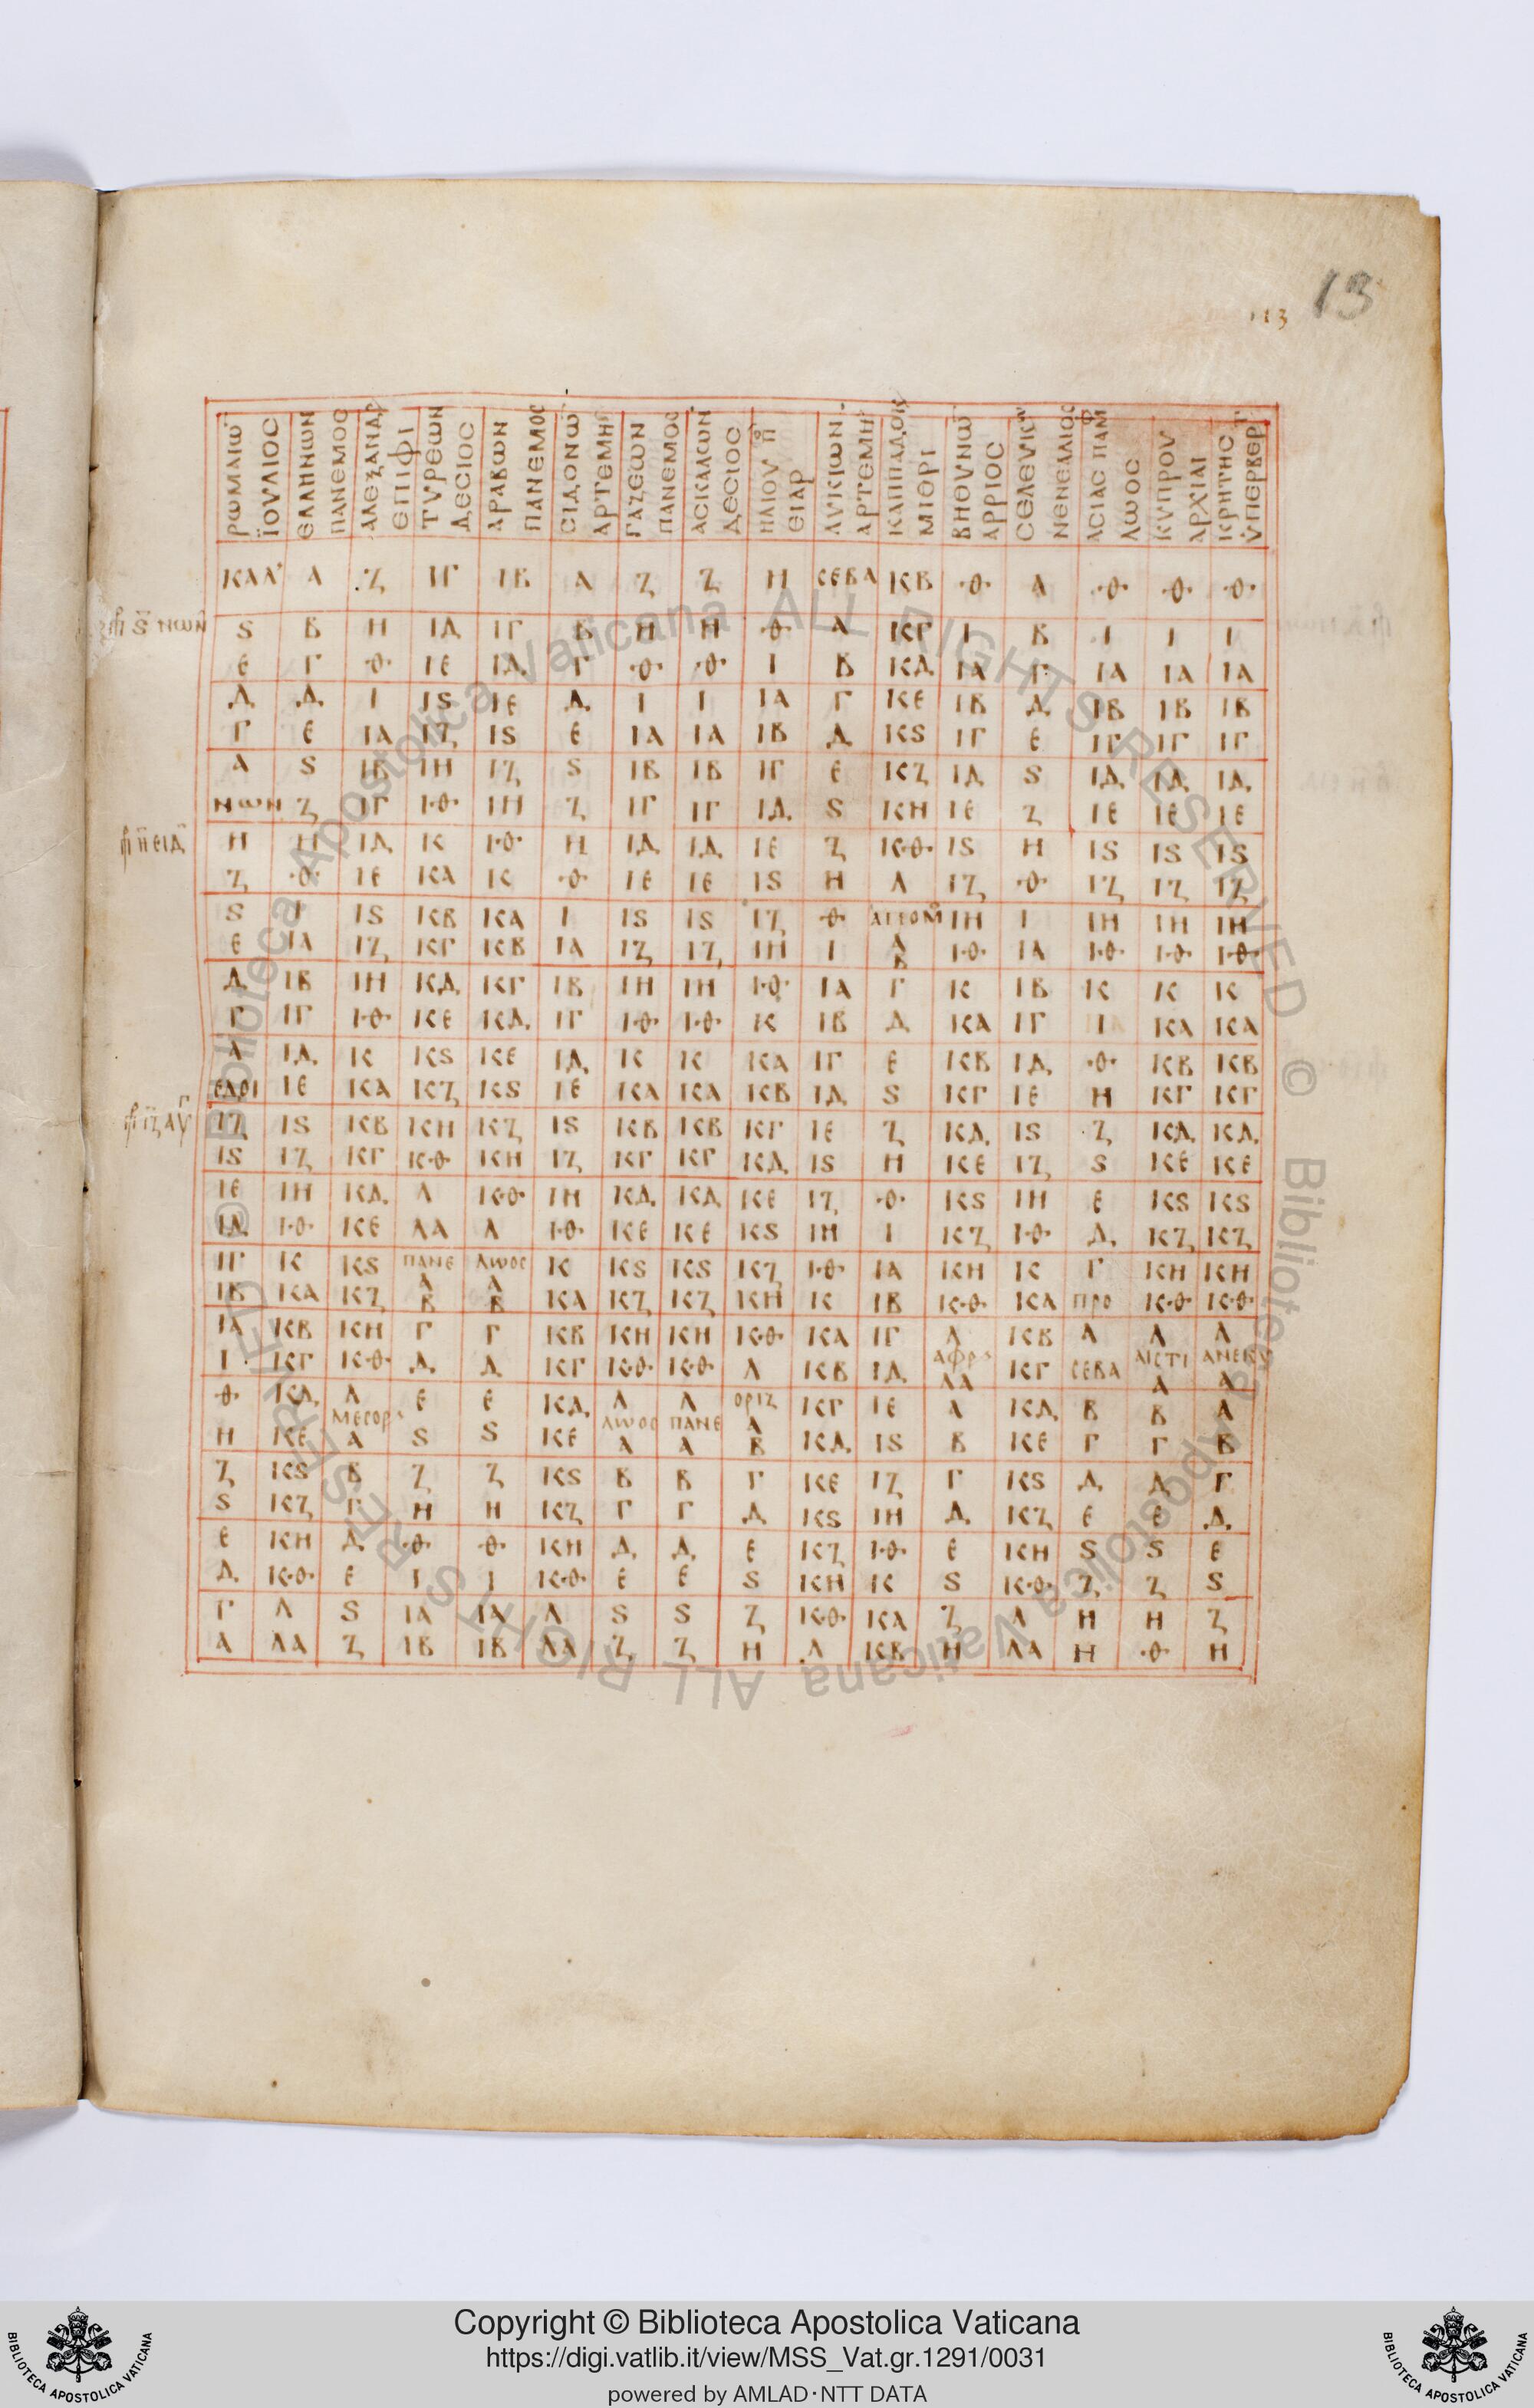 13
113
ΡΩΜΑΙΩ ΕΛΛΗΝΩΝ ΑΛΕΞΑΝΔΡ ΤΥΡΕΩΝ ΑΡΑΒΩΝ CΙΔΟΝΩ ΓΑΖΕΩΝ ΑCΚΑΛΩΝ ΗΛΙΟΥ Π ΛΥΚΙΩΝ ΚΑΠΠΑΔΟΚ ΒΗΘΥΝΩ CΕΛΕΥΚ ΑCΙΑC ΠΑΜΦ ΚΥΠΡΟΥ ΚΡΗΤΗC
ΪΟΥΛΙΟC ΠΑΝΕΜΟC ΕΠΙΦΙ ΔΕCΙΟC ΠΑΝΕΜΟC ΑΡΤΕΜΗ ΠΑΝΕΜΟC ΔΕCΙΟC ΕΙΑΡ ΑΡΤΕΜΗ ΜΙΘΡΙ ΑΡΡΙΟC ΝΕΝΕΑΛΙΟC ΛΩΟC ΑΡΧΙΑΙ ΥΠΕΡΒΕΡ
ΚΑΛ Α Ζ ΙΓ ΙΒ Α Ζ Ζ Η CΕΒΑ ΚΒ Θ Α Θ Θ Θ
S Β Η ΙΔ ΙΓ Β Η Η Θ Α ΚΓ Ι Β Ι Ι Ι
Ε Γ Θ ΙΕ ΙΔ Γ Θ Θ Ι Β ΚΔ ΙΑ Γ ΙΑ ΙΑ ΙΑ
Δ Δ Ι ΙS ΙΕ Δ Ι Ι ΙΑ Γ ΚΕ ΙΒ Δ ΙΒ ΙΒ ΙΒ
Γ Ε ΙΑ ΙΖ ΙS Ε ΙΑ ΙΑ ΙΒ Δ ΚS ΙΓ Ε ΙΓ ΙΓ ΙΓ
Α S ΙΒ ΙΗ ΙΖ S ΙΒ ΙΒ ΙΓ Ε ΚΖ ΙΔ S ΙΔ ΙΔ ΙΔ
ΝΩΝ Ζ ΙΓ ΙΘ ΙΗ Ζ ΙΓ ΙΓ ΙΔ S ΚΗ ΙΕ Ζ ΙΕ ΙΕ ΙΕ
Η Η ΙΔ Κ ΙΘ Η ΙΔ ΙΔ ΙΕ Ζ ΚΘ ΙS Η ΙS ΙS ΙS
Ζ Θ ΙΕ ΚΑ Κ Θ ΙΕ ΙΕ ΙS Η Λ ΙΖ Θ ΙΖ ΙΖ ΙΖ
S Ι ΙS ΚΒ ΚΑ Ι ΙS ΙS ΙΖ Θ Α ΙΗ Ι ΙΗ ΙΗ ΙΗ
Ε ΙΑ ΙΖ ΚΓ ΚΒ ΙΑ ΙΖ ΙΖ ΙΗ Ι Β ΙΘ ΙΑ ΙΘ ΙΘ ΙΘ
Δ ΙΒ ΙΗ ΚΔ ΚΓ ΙΒ ΙΗ ΙΗ ΙΘ ΙΑ Γ Κ ΙΒ Κ Κ Κ
Γ ΙΓ ΙΘ ΚΕ ΚΔ ΙΓ ΙΘ ΙΘ Κ ΙΒ Δ ΚΑ ΙΓ Ι ΚΑ ΚΑ
Α ΙΔ Κ ΚS ΚΕ ΙΔ Κ Κ ΚΑ ΙΓ Ε ΚΒ ΙΔ Θ ΚΒ ΚΒ
ΕΔΟΙ ΙΕ ΚΑ ΚΖ ΚS ΙΕ ΚΑ ΚΑ ΚΒ ΙΔ S ΚΓ ΙΕ Η ΚΓ ΚΓ
ΙΖ ΙS ΚΒ ΚΗ ΚΖ ΙS ΚΒ ΚΒ ΚΓ ΙΕ Ζ ΚΔ ΙS Ζ ΚΔ ΚΔ
ΙS ΙΖ ΚΓ ΚΘ ΚΗ ΙΖ ΚΓ ΚΓ ΚΔ ΙS Η ΚΕ ΙΖ S ΚΕ ΚΕ
ΙΕ ΙΗ ΚΔ Λ ΚΘ ΙΗ ΚΔ ΚΔ ΚΕ ΙΖ Θ ΚS ΙΗ Ε ΚS ΚS
ΙΔ ΙΘ ΚΕ ΛΑ Λ ΙΘ ΚΕ ΚΕ ΚS ΙΗ Ι ΚΖ ΙΘ Δ ΚΖ ΚΖ
ΙΓ Κ ΚS ΠΑΝΕ Α ΛΩΟC Α Κ ΚS ΚS ΚΖ ΙΘ ΙΑ ΚΗ Κ Γ ΚΗ ΚΗ
ΙΒ ΚΑ ΚΖ Β Β ΚΑ ΚΖ ΚΖ ΚΗ Κ ΙΒ ΚΘ ΚΑ ΠΡΟ ΚΘ ΚΘ
ΙΑ ΚΒ ΚΗ Γ Γ ΚΒ ΚΗ ΚΗ ΚΘ ΚΑ ΙΓ Λ ΚΒ Α Λ Λ
Ι ΚΓ ΚΘ Δ Δ ΚΓ ΚΘ ΚΘ Λ ΚΒ ΙΔ ΑΦΡ ΛΑ ΚΓ CΕΒΑ Α Α
Θ ΚΔ Λ Ε Ε ΚΔ Λ Λ ΟΡΙΖ Α ΚΓ ΙΕ Α ΚΔ Β Β Α
Η ΚΕ ΜΕCΟΡ Α S S ΚΕ ΛΩΟC Α ΠΑΝΕ Α Β ΚΔ ΙS Β ΚΕ Γ Γ Β
Ζ ΚS Β Ζ Ζ ΚS Β Β Γ ΚΕ ΙΖ Γ ΚS Δ Δ Γ
S ΚΖ Γ Η Η ΚΖ Γ Γ Δ ΚS ΙΗ Δ ΚΖ Ε Ε Δ
Ε ΚΗ Δ Θ Θ ΚΗ Δ Δ Ε ΚΖ ΙΘ Ε ΚΗ S S Ε
Δ ΚΘ Ε Ι Ι ΚΘ Ε Ε S ΚΗ Κ S ΚΘ Ζ Ζ S
Γ Λ S ΙΑ ΙΑ Λ S S Ζ ΚΘ ΚΑ Ζ Λ Η Η Ζ
Α ΛΑ Ζ ΙΒ ΙΒ ΛΑ Ζ Ζ Η Λ ΚΒ Η ΛΑ Η Θ Η
© Biblioteca Apostolica Vaticana ALL RIGHTS RESERVED
© Biblioteca Apostolica Vaticana ALL RIGHTS RESERVED
BIBLIOTECA APOSTOLICA VATICANA
Copyright © Biblioteca Apostolica Vaticana
https://digi.vatlib.it/view/MSS_Vat.gr.1291/0031
powered by AMLAD·NTT DATA
BIBLIOTECA APOSTOLICA VATICANA